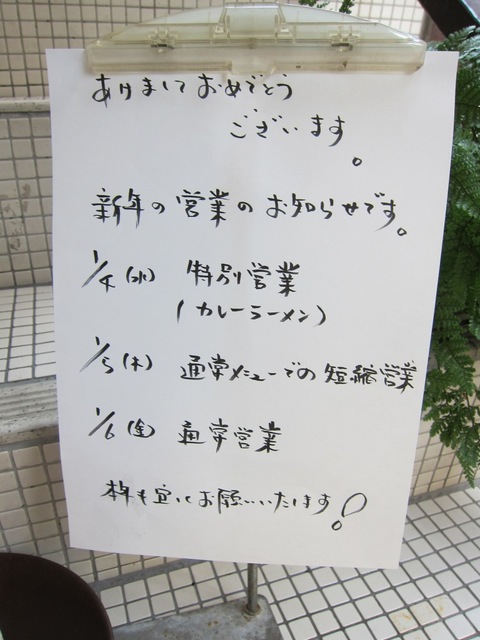 あけましておめでとう
ございます。
新年の営業のお知らせです。
1/4(水) 特別営業
(カレーラーメン)
1/5(木) 通常メニューでの短縮営業
1/6(金) 通常営業
本年も宜しくお願いいたします。